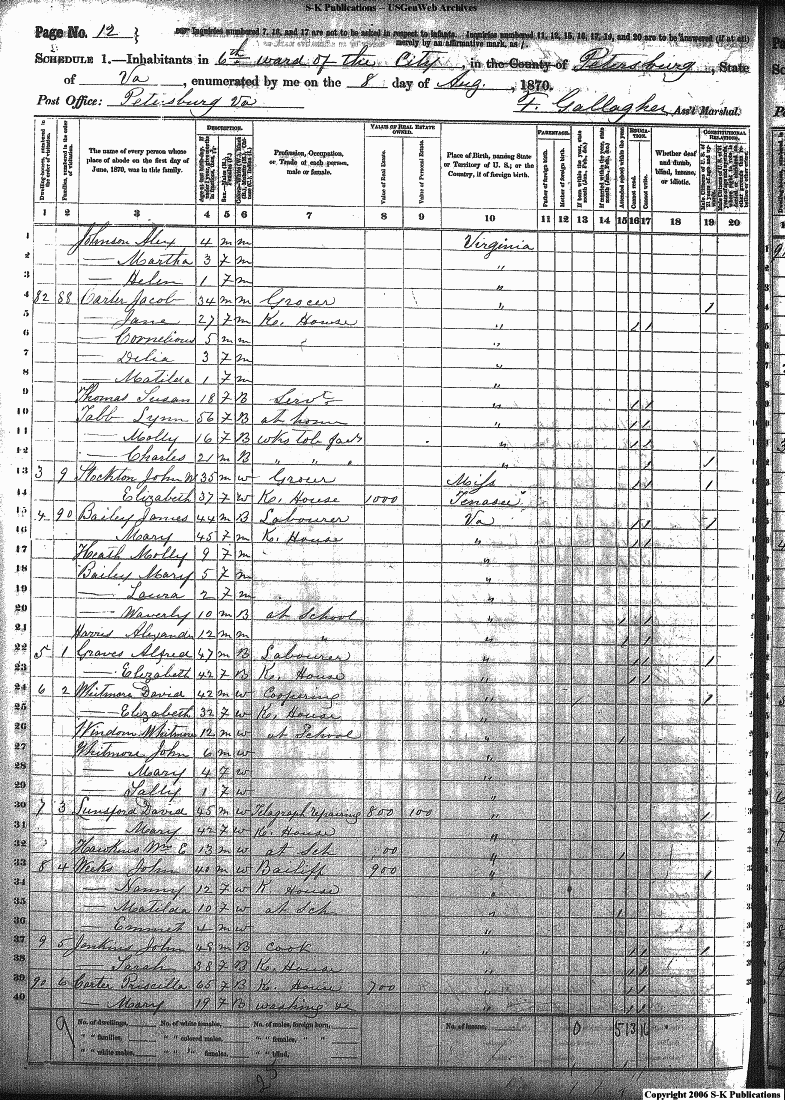 S-K Publications – USGenWeb Archives
Page No. 12 } Inquiries numbered 7, 16, and 17 are not to be asked in respect to infants. Inquiries numbered 11, 12, 15, 16, 17, 19, and 20 are to be answered (if at all)
merely by an affirmative mark, as /.
Schedule 1.—Inhabitants in 6th ward of the City, in the County of Petersburg, State
of Va, enumerated by me on the 8 day of Aug., 1870.
Post Office: Petersburg Va F. Gallagher, Ass't Marshal.
Dwelling-houses, numbered in the order of visitation.
Families, numbered in the order of visitation.
The name of every person whose place of abode on the first day of June, 1870, was in this family.
Description.
Profession, Occupation, or Trade of each person, male or female.
Value of Real Estate Owned.
Value of Real Estate.
Value of Personal Estate.
Place of Birth, naming State or Territory of U. S.; or the Country, if of foreign birth.
Parentage.
Father of foreign birth.
Mother of foreign birth.
Attended school within the year.
Education.
Cannot read.
Cannot write.
Whether deaf and dumb, blind, insane, or idiotic.
Constitutional Relations.
1 2 3 4 5 6 7 8 9 10 11 12 13 14 15 16 17 18 19 20
1 Johnson Alex 4 m m Virginia
2 — Martha 3 F m "
3 — Helen 1 F m "
4 82 88 Carter Jacob 34 m m Grocer " /
5 — Jane 27 F m Ke. House " / /
6 — Cornelious 5 m m "
7 — Delia 3 F m "
8 — Matilda 1 F m "
9 Thomas Susan 18 F B Servt " / /
10 Tabb Lynn 56 F B at home " / /
11 — Molly 16 F B wks tob fact " / /
12 — Charles 21 m B " " " " / /
13 3 9 Stockton John W 35 m w Grocer Miss / / /
14 Elizabeth 37 F w K. House 1000 Tenasee
15 4 90 Bailey James 44 m B Labourer Va / / /
16 — Mary 45 F m K. House " / /
17 Heath Molly 9 F m "
18 Bailey Mary 5 F m "
19 — Laura 2 F m "
20 — Waverly 10 m B at School " / /
21 Harris Alexander 12 m m " " / /
22 5 1 Graves Alfred 47 m B Labourer " / / /
23 — Elizabeth 42 F B K. House " / /
24 6 2 Whitmore David 42 m w Coopering " /
25 — Elizabeth 32 F w K. House "
26 Windom Whitmore 12 m w at School " /
27 Whitmore John 6 m w "
28 — Mary 4 F w "
29 — Sally 1 F w "
30 7 3 Lunsford David 45 m w Telagraph repairing 800 100 " /
31 — Mary 42 F w K. House "
32 Hawkins Wm E 13 m w at Sch " /
33 8 4 Weeks John 40 m w Bailiff 900 " /
34 — Nanny 12 F w K House "
35 — Matilda 10 F w at Sch " /
36 — Emmet 4 m w "
37 9 5 Jenkins John 48 m B Cook " / / /
38 — Sarah 38 F B K. House " / /
39 90 6 Carter Priscilla 65 F B K. House 700 " / /
40 — Mary 19 F B washing &c " / /
9 No. of dwellings, No. of white females, No. of males, foreign born, No. of insane, 0 5 13 16
" " families, " " colored males, " " females, " "
" " white males, " " females, " " blind,
Copyright 2006 S-K Publications